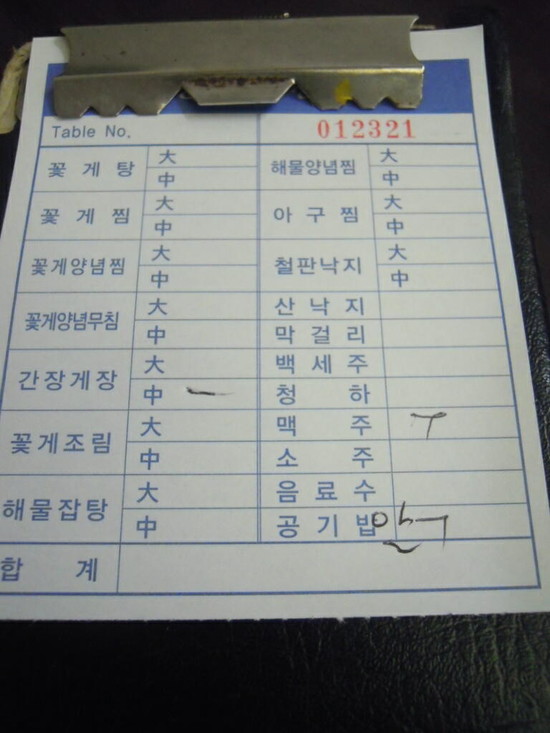 Table No. 012321
꽃게탕 大 해물양념찜 大
中 中
꽃게찜 大 아구찜 大
中 中
꽃게양념찜 大 철판낙지 大
中 中
꽃게양념무침 大 산낙지
中 막걸리
간장게장 大 백세주
中 청하
꽃게조림 大 맥주
中 소주
해물잡탕 大 음료수
中 공기밥
합계